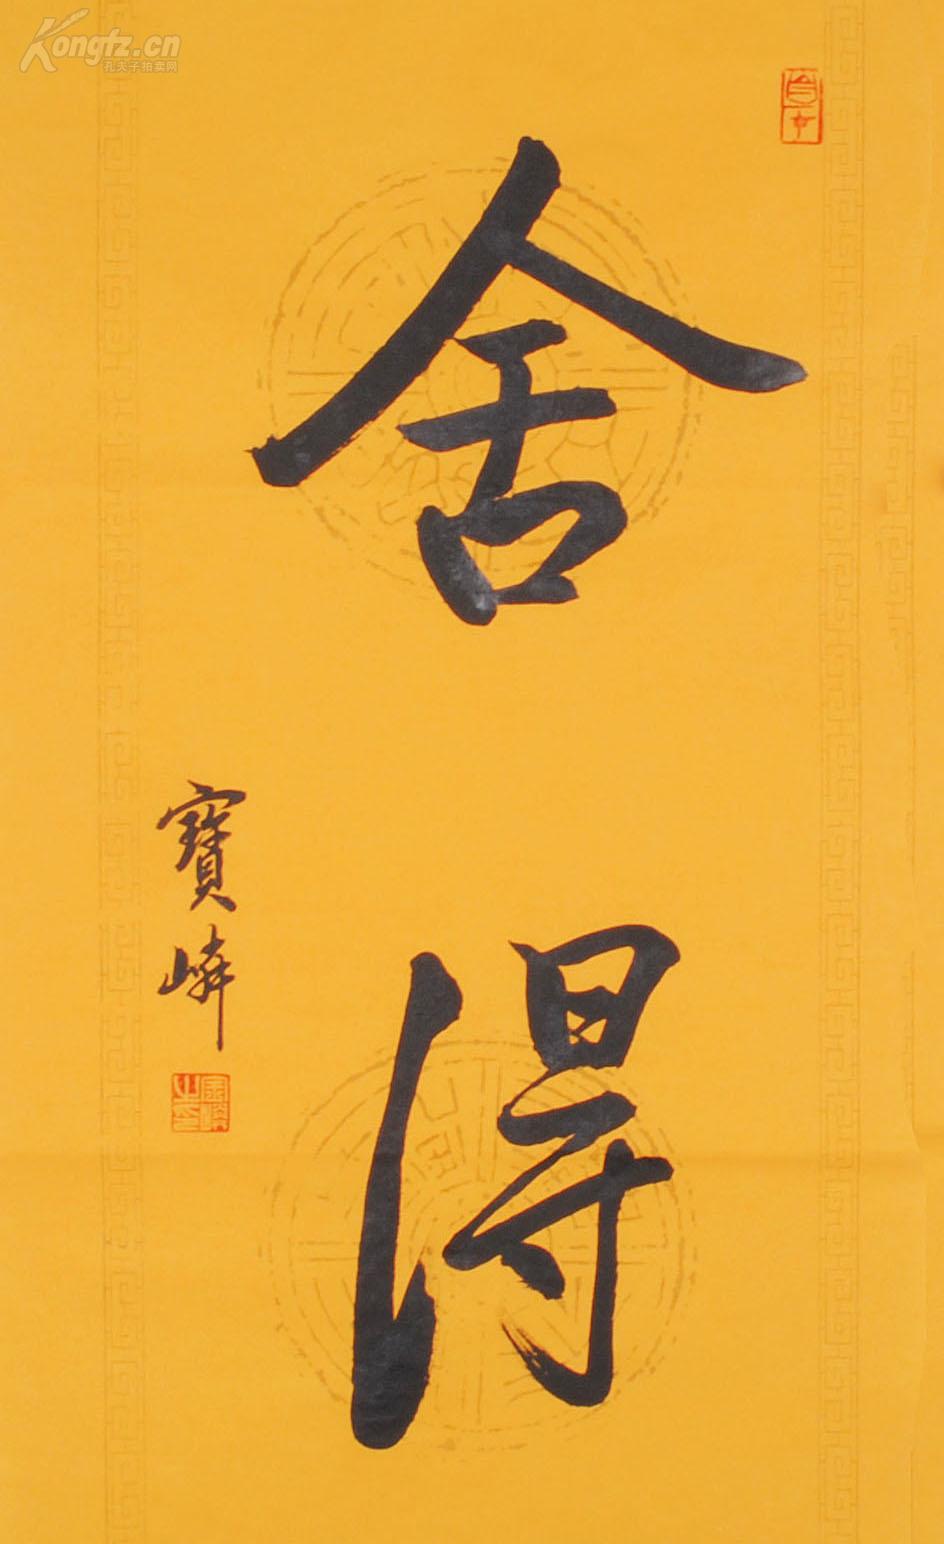 Kongfz.cn
孔夫子拍卖网
舍
得
寶嶙